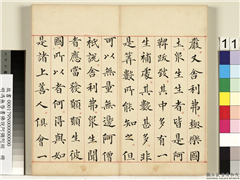 嚴又舍利弗極樂國
土眾生生者皆是阿
鞞跋致其中多有一
生補處其數甚多非
是算數所能知之但
可以無量無邊阿僧
祇說舍利弗眾生聞
者應當發願願生彼
國所以者何得與如
是諸上善人俱會